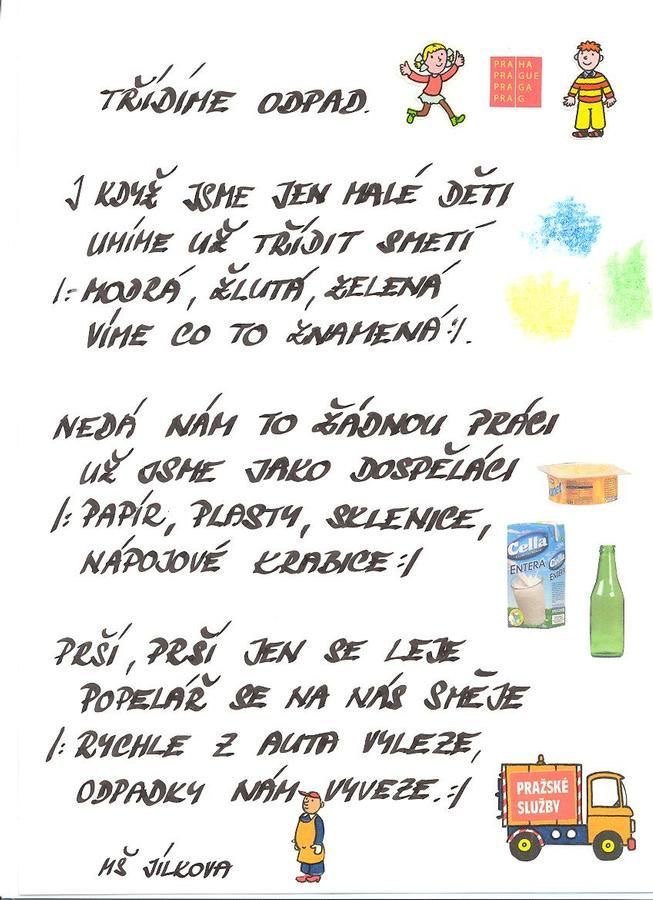 TŘÍDÍME ODPAD.
PRA HA
PRA GUE
PRA GA
PRA G
I KDYŽ JSME JEN MALÉ DĚTI
UMÍME UŽ TŘÍDIT SMETÍ
/: MODRÁ, ŽLUTÁ, ZELENÁ
VÍME CO TO ZNAMENÁ :/.
NEDÁ NÁM TO ŽÁDNOU PRÁCI
UŽ JSME JAKO DOSPĚLÁCI
/: PAPÍR, PLASTY, SKLENICE,
NÁPOJOVÉ KRABICE :/
Cella
ENTERA
PRŠÍ, PRŠÍ JEN SE LEJE
POPELÁŘ SE NA NÁS SMĚJE
/: RYCHLE Z AUTA VYLEZE,
ODPADKY NÁM VYVEZE. :/
PRAŽSKÉ
SLUŽBY
MŠ JÍLKOVA